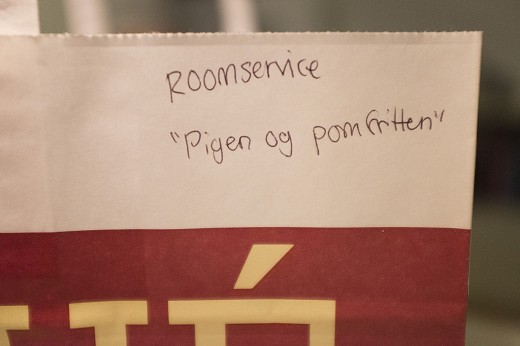 Roomservice
"Pigen og pomfritten"